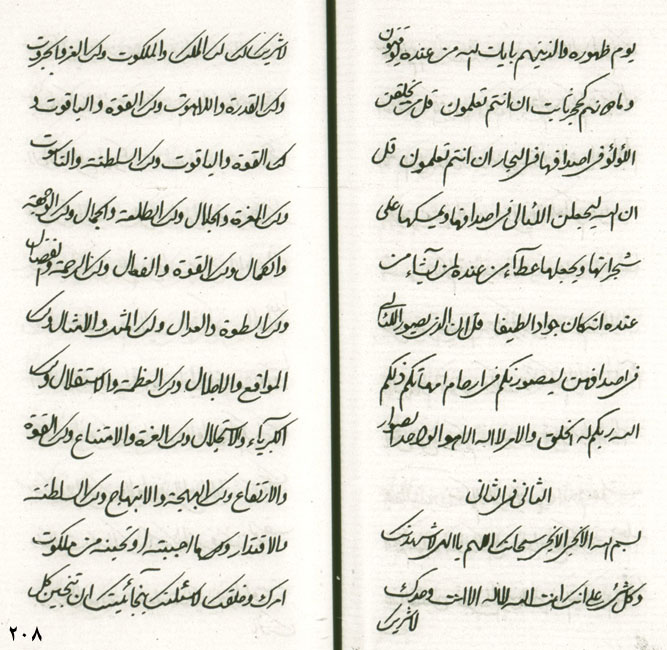 يوم ظهوره والذينهم بايات الله من عنده لموقنون
وما من نهم كحجر نابت ان انتم تعلمون قل من يخلقن
اللؤلؤ في اصدافها في البحار ان انتم تعلمون قل
ان الله ليجعلن اللئالئ في اصدافها ويمسكها على
شجراتها ويجعلها عطآء من عنده لمن يشآء من
عنده انه كان جوادا لطيفا قل ان الذي يصور اللئالئ
في اصدافهن ليصورنكم في ارحام امهاتكم ذلكم
الله ربكم له الخلق والامر لا اله الا هو الواحد الصوار
الثاني في الثاني
بسم الله الانجر الانجر سبحانك اللهم يا الهي لاشهدنك
وكل شئ على انك انت الله لا اله الا انت وحدك
لا شريك
لا شريك لك لك الملك والملكوت ولك العز والجبروت
ولك القدرة واللاهوت ولك القوة والياقوت و
لك القوة والياقوت ولك السلطنة والناسوت
ولك العزة والجلال ولك الطلعة والجمال ولك الوجهة
والكمال ولك القوة والفعال ولك الرحمة والفضال
ولك السطوة والعدال ولك المثل والامثال ولك
المواقع والاجلال ولك العظمة والاستقلال ولك
الكبرياء والاستجلال ولك العزة والامتناع ولك القوة
والارتفاع ولك البهجة والابتهاج ولك السلطنة
والاقتدار ولك ما احببته او تحبنه من ملكوت
امرك وخلقك لاسئلنك بنجائيتك ان تنجين كل
٢٠٨